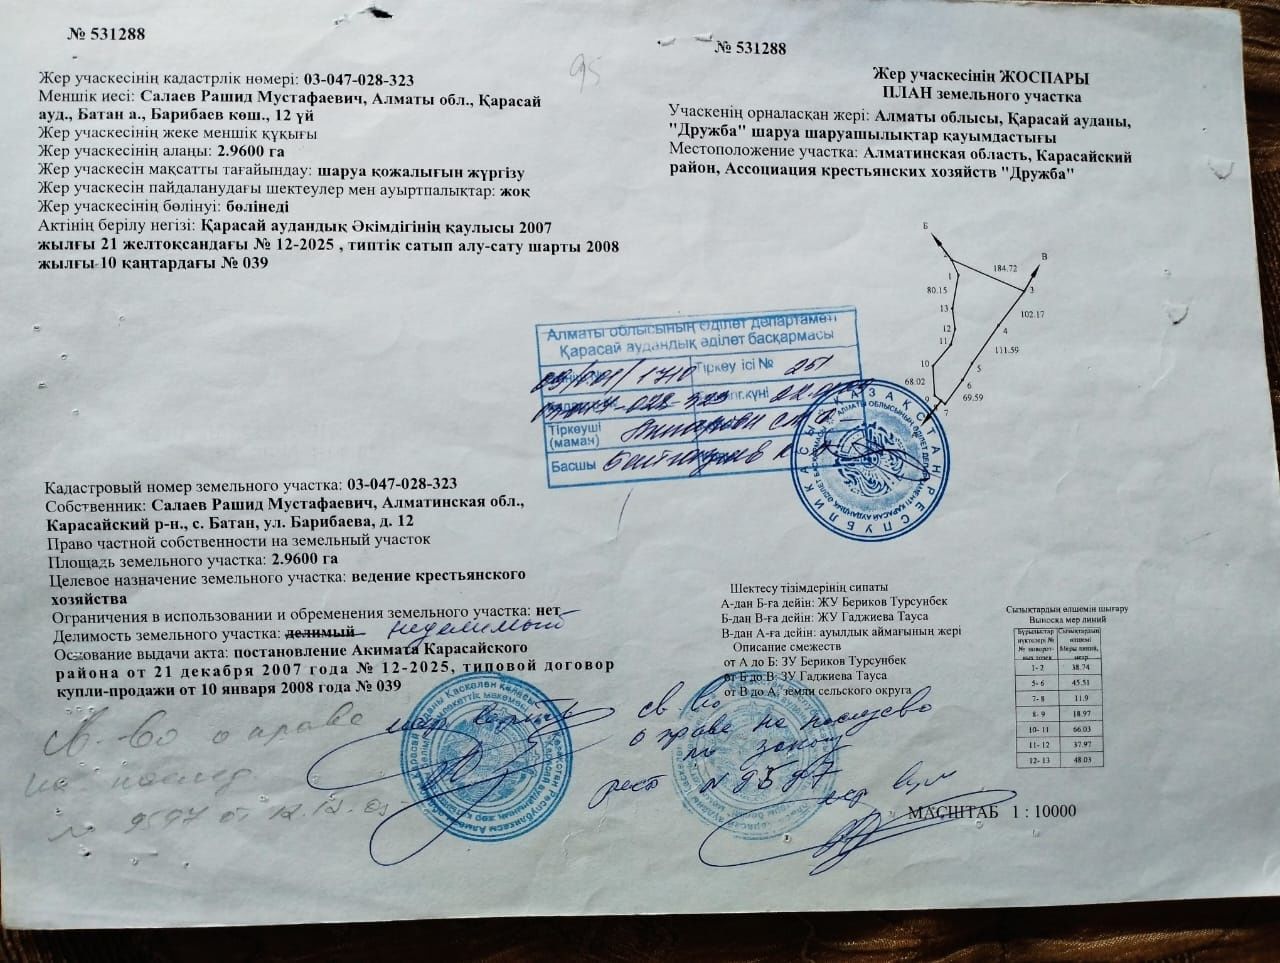 № 531288
Жер учаскесінің кадастрлік нөмері: 03-047-028-323
Меншік иесі: Салаев Рашид Мустафаевич, Алматы обл., Қарасай
ауд., Батан а., Барибаев көш., 12 үй
Жер учаскесінің жеке меншік құқығы
Жер учаскесінің алаңы: 2.9600 га
Жер учаскесін мақсатты тағайындау: шаруа қожалығын жүргізу
Жер учаскесін пайдаланудағы шектеулер мен ауыртпалықтар: жоқ
Жер учаскесінің бөлінуі: бөлінеді
Актінің берілу негізі: Қарасай аудандық Әкімдігінің қаулысы 2007
жылғы 21 желтоқсандағы № 12-2025 , типтік сатып алу-сату шарты 2008
жылғы 10 қаңтардағы № 039
95
Кадастровый номер земельного участка: 03-047-028-323
Собственник: Салаев Рашид Мустафаевич, Алматинская обл.,
Карасайский р-н., с. Батан, ул. Барибаева, д. 12
Право частной собственности на земельный участок
Площадь земельного участка: 2.9600 га
Целевое назначение земельного участка: ведение крестьянского
хозяйства
Ограничения в использовании и обременения земельного участка: нет
Делимость земельного участка: делимый неделимый
Основание выдачи акта: постановление Акимата Карасайского
района от 21 декабря 2007 года № 12-2025, типовой договор
купли-продажи от 10 января 2008 года № 039
Св-во о праве
на наслед
№ 9597 от 12.12.
№ 531288
Жер учаскесінің ЖОСПАРЫ
ПЛАН земельного участка
Учаскенің орналасқан жері: Алматы облысы, Қарасай ауданы,
"Дружба" шаруа шаруашылықтар қауымдастығы
Местоположение участка: Алматинская область, Карасайский
район, Ассоциация крестьянских хозяйств "Дружба"
Б
В
2
184.72
1
3
80.15
13
102.17
12
4
11
111.59
10
5
68.02
6
69.59
9
7
Алматы облысының Әділет департаменті
Қарасай аудандық әділет басқармасы
Тіркеу ісі № 251
Тіркеуші
(маман)
Басшы
Шектесу тізімдерінің сипаты
А-дан Б-ға дейін: ЖУ Бериков Турсунбек
Б-дан В-ға дейін: ЖУ Гаджиева Тауса
В-дан А-ға дейін: ауылдык аймағының жері
Описание смежеств
от А до Б: ЗУ Бериков Турсунбек
от Б до В: ЗУ Гаджиева Тауса
от В до А: земли сельского округа
св во
о праве на наследство
по закону
реест № 9597
Сызықтардың өлшемін шығару
Выноска мер линий
Бұрылыстар нүктелері № № поворотных точек
Сызықтардың өлшемі Меры линий, метр
1- 2 38.74
5- 6 45.51
7- 8 11.9
8- 9 18.97
10- 11 66.03
11- 12 37.97
12- 13 48.03
МАСШТАБ 1 : 10000